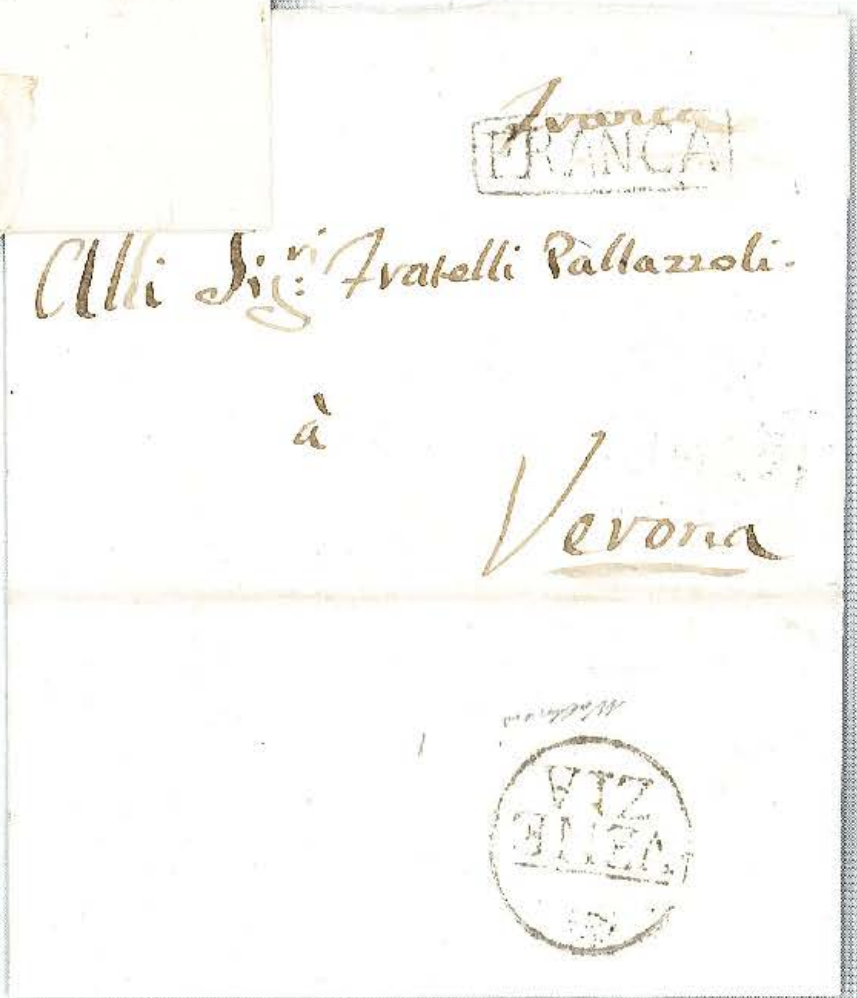 Franca
FRANCA
Alli Sig.ri Fratelli Pallazzoli.
à
Verona
VENE
ZIA